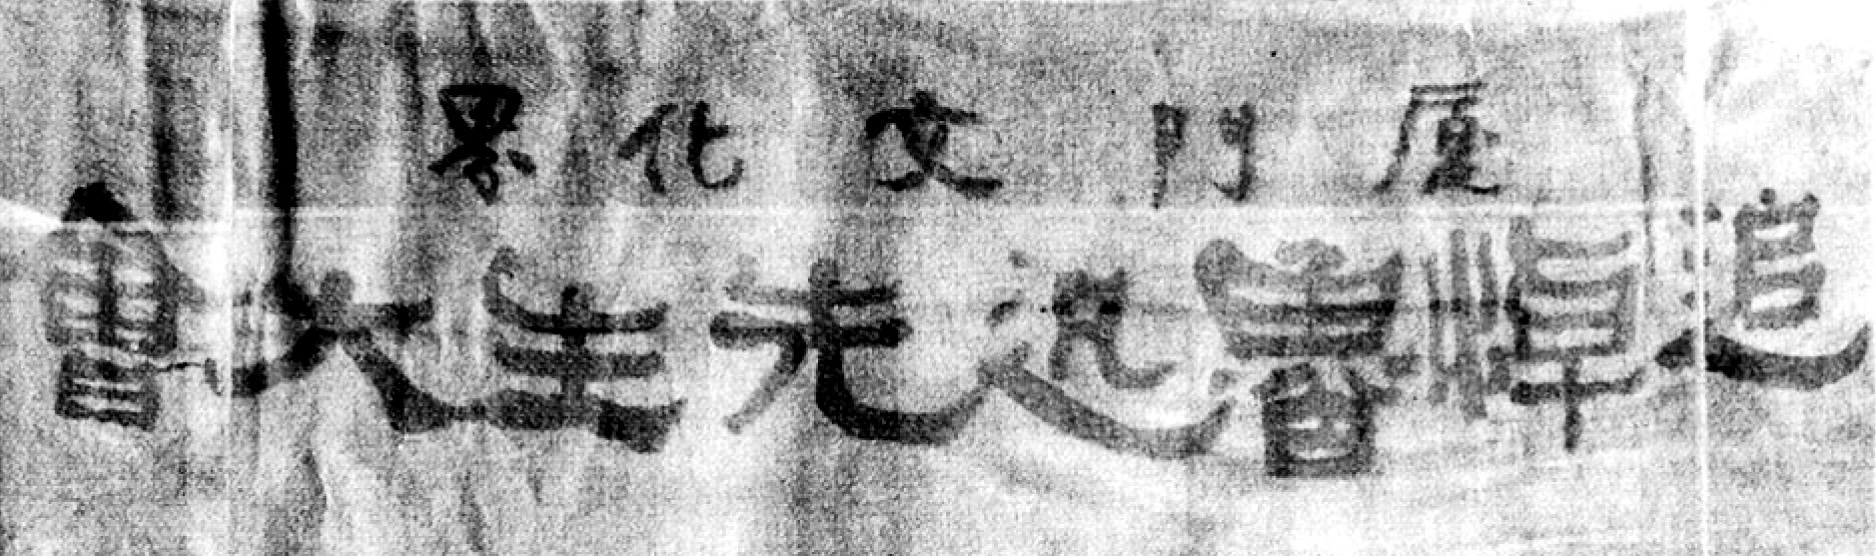 厦門文化界
追悼魯迅先生大會